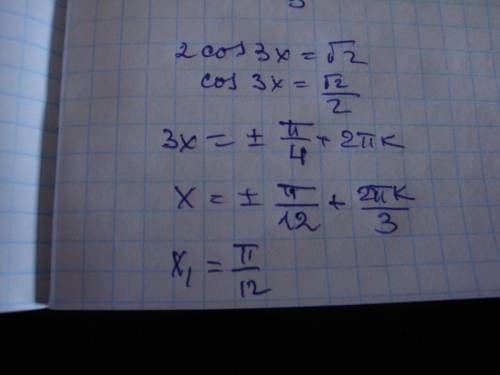 2 cos 3x = √2
cos 3x = √2/2
3x = ± π/4 + 2πk
x = ± π/12 + 2πk/3
x₁ = π/12